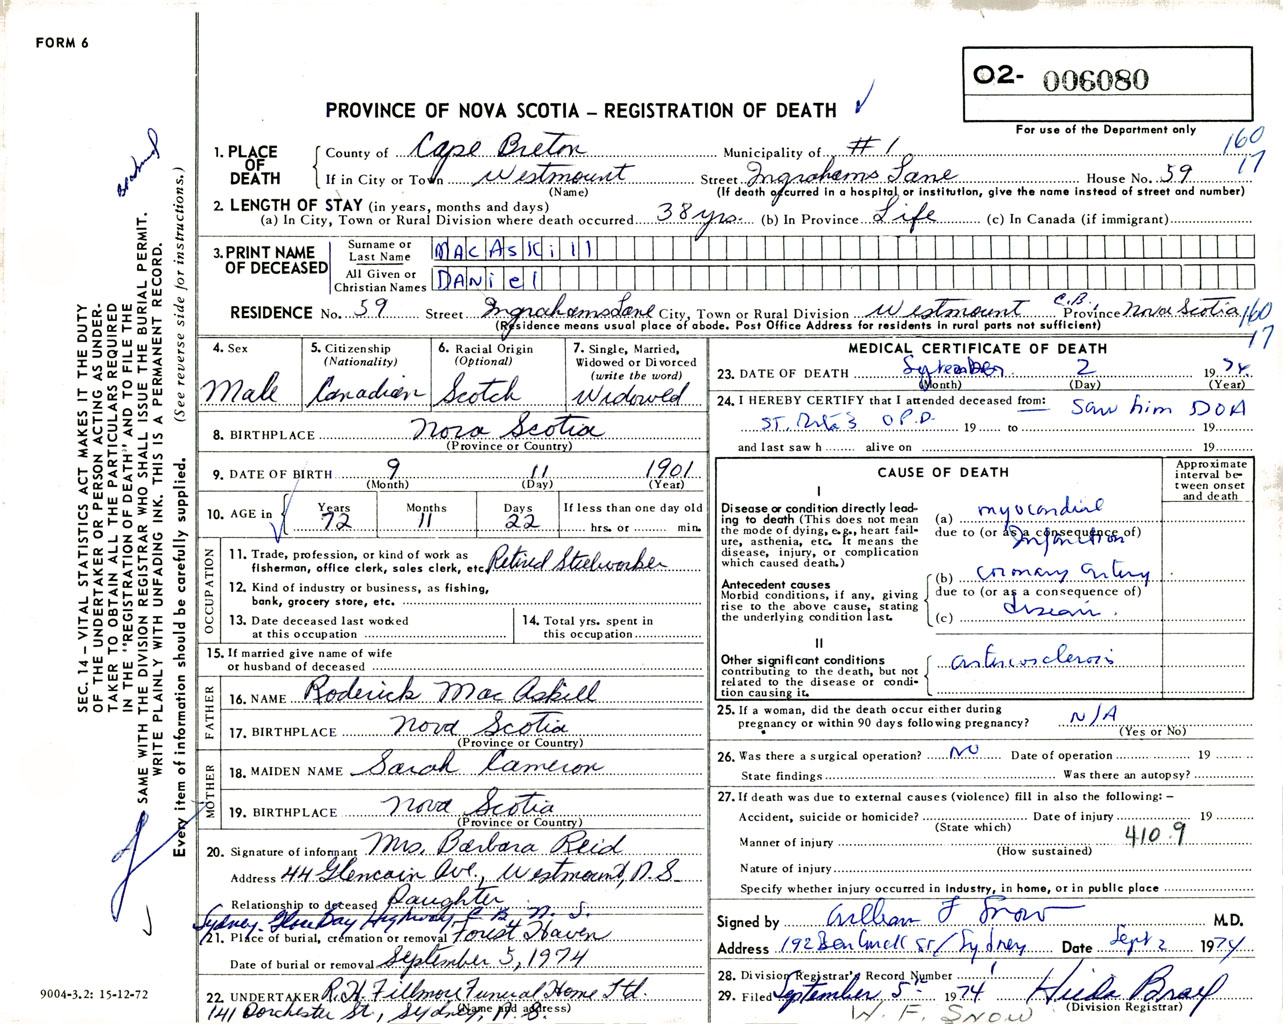 FORM 6
O2- 006080
For use of the Department only
PROVINCE OF NOVA SCOTIA – REGISTRATION OF DEATH ✓
160
17
1. PLACE OF DEATH
County of Cape Breton Municipality of #1
If in City or Town Westmount Street Ingrahams Lane House No. 59
(Name) (If death occurred in a hospital or institution, give the name instead of street and number)
2. LENGTH OF STAY (in years, months and days)
(a) In City, Town or Rural Division where death occurred 38 yrs. (b) In Province Life (c) In Canada (if immigrant)
3. PRINT NAME OF DECEASED
Surname or Last Name MacAskill
All Given or Christian Names Daniel
RESIDENCE No. 59 Street Ingrahams Lane City, Town or Rural Division Westmount C.B., Province Nova Scotia 160
17
(Residence means usual place of abode. Post Office Address for residents in rural parts not sufficient)
4. Sex
Male
5. Citizenship
(Nationality)
Canadian
6. Racial Origin
(Optional)
Scotch
7. Single, Married,
Widowed or Divorced
(write the word)
Widowed
8. BIRTHPLACE Nova Scotia
(Province or Country)
9. DATE OF BIRTH 9 11 1901
(Month) (Day) (Year)
10. AGE in
Years Months Days If less than one day old
72 11 22 hrs. or min.
OCCUPATION
11. Trade, profession, or kind of work as
fisherman, office clerk, sales clerk, etc. Retired Steelworker
12. Kind of industry or business, as fishing,
bank, grocery store, etc.
13. Date deceased last worked
at this occupation
14. Total yrs. spent in
this occupation
15. If married give name of wife
or husband of deceased
FATHER
16. NAME Roderick MacAskill
17. BIRTHPLACE Nova Scotia
(Province or Country)
MOTHER
18. MAIDEN NAME Sarah Cameron
19. BIRTHPLACE Nova Scotia
(Province or Country)
20. Signature of informant Mrs. Barbara Reid
Address 44 Glencairn Ave., Westmount, N.S.
Relationship to deceased Daughter
Sydney-Glace Bay Highway C.B. N.S.
21. Place of burial, cremation or removal Forest Haven
Date of burial or removal September 5, 1974
22. UNDERTAKER R.H. Fillmore Funeral Home Ltd.
(Name and address)
141 Dorchester St., Sydney, N.S.
MEDICAL CERTIFICATE OF DEATH
23. DATE OF DEATH September 2 1974
(Month) (Day) (Year)
24. I HEREBY CERTIFY that I attended deceased from: Saw him DOA
St. Rita's O.P.D. 19 to 19
and last saw h alive on 19
CAUSE OF DEATH
Approximate
interval be-
tween onset
and death
I
Disease or condition directly lead-
ing to death (This does not mean
the mode of dying, e.g., heart fail-
ure, asthenia, etc. It means the
disease, injury, or complication
which caused death.)
(a) myocardial
due to (or as a consequence of)
Infarction
Antecedent causes
Morbid conditions, if any, giving
rise to the above cause, stating
the underlying condition last.
(b) coronary artery
due to (or as a consequence of)
disease.
(c)
II
Other significant conditions
contributing to the death, but not
related to the disease or condi-
tion causing it.
arteriosclerosis
25. If a woman, did the death occur either during
pregnancy or within 90 days following pregnancy? N/A
(Yes or No)
26. Was there a surgical operation? NO Date of operation 19
State findings Was there an autopsy?
27. If death was due to external causes (violence) fill in also the following: –
Accident, suicide or homicide? Date of injury 19
(State which)
410.9
Manner of injury
(How sustained)
Nature of injury
Specify whether injury occurred in Industry, in home, or in public place
Signed by William F Snow M.D.
Address 192 Bentinck St/Sydney Date Sept 2 1974
28. Division Registrar's Record Number 1
29. Filed September 5th 1974 Hilda Bray
(Division Registrar)
W. F. SNOW
SEC. 14 – VITAL STATISTICS ACT MAKES IT THE DUTY
OF THE UNDERTAKER OR PERSON ACTING AS UNDER-
TAKER TO OBTAIN ALL THE PARTICULARS REQUIRED
IN THE "REGISTRATION OF DEATH" AND TO FILE THE
SAME WITH THE DIVISION REGISTRAR WHO SHALL ISSUE THE BURIAL PERMIT.
WRITE PLAINLY WITH UNFADING INK. THIS IS A PERMANENT RECORD.
Every item of information should be carefully supplied. (See reverse side for instructions.)
9004-3.2: 15-12-72